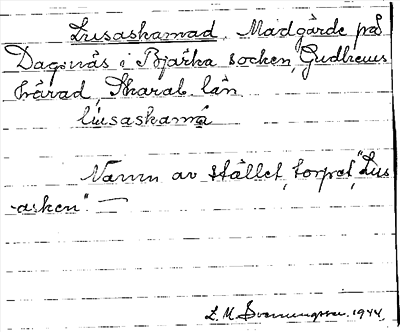 Lusaskamad. Madgärde på
Dagsnäs i Bjärka socken, Gudhems
härad, Skarab. län.
lu̇saskamȧ
Namn av stället, torpet, "Lus
-asken". —
L. M. Svenungsson. 1944.